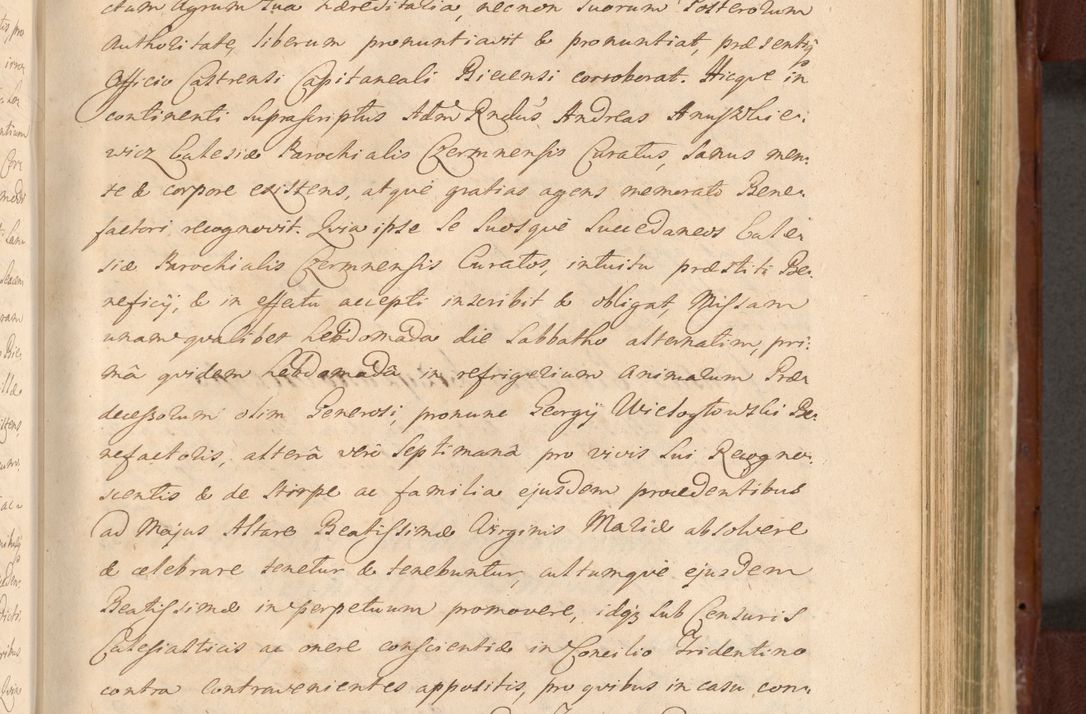 ctum Agrum sua hæreditalia, necnon suorum Posterorum
Authoritate, liberum pronuntiavit & pronuntiat, præsentis
Officio Castrensi Capitaneali Biecensi corroborat. Hicque in
continenti suprascriptus Adm Rndus Andreas
wicz Eclesiæ Parochialis Czermnensis Curatus, sanus men-
te & corpore existens, atquè gratias agens memorato Bene-
factori recognovit. Quia ipse se suosquè succedaneos Ecle-
siæ Parochialis Czermnensis Curatos, intuitu præstiti Be-
neficij, & in effectu accepti inscribit & obligat, Missam
unam qualibet hebdomada die Sabbatho alternatim, pri-
mâ quidem hebdomadâ in refrigerium Animarum Præ-
decessorum olim Generosi, pronunc Georgij Wielogłowski Be-
nefactoris, alterâ verò septimanâ pro vivis sui Recogno-
scentis & de stirpe ac familia ejusdem procedentibus
ad Majus Altare Beatissimæ Virginis Mariæ absolvere
& celebrare tenetur & tenebuntur, cultumquè ejusdem
Beatissimæ in perpetuum promovere, idq3 sub Censuris
Eclesiasticis ac onere conscientiæ in Concilio Tridentino
contra contravenientes appositis, pro quibus in casu con-